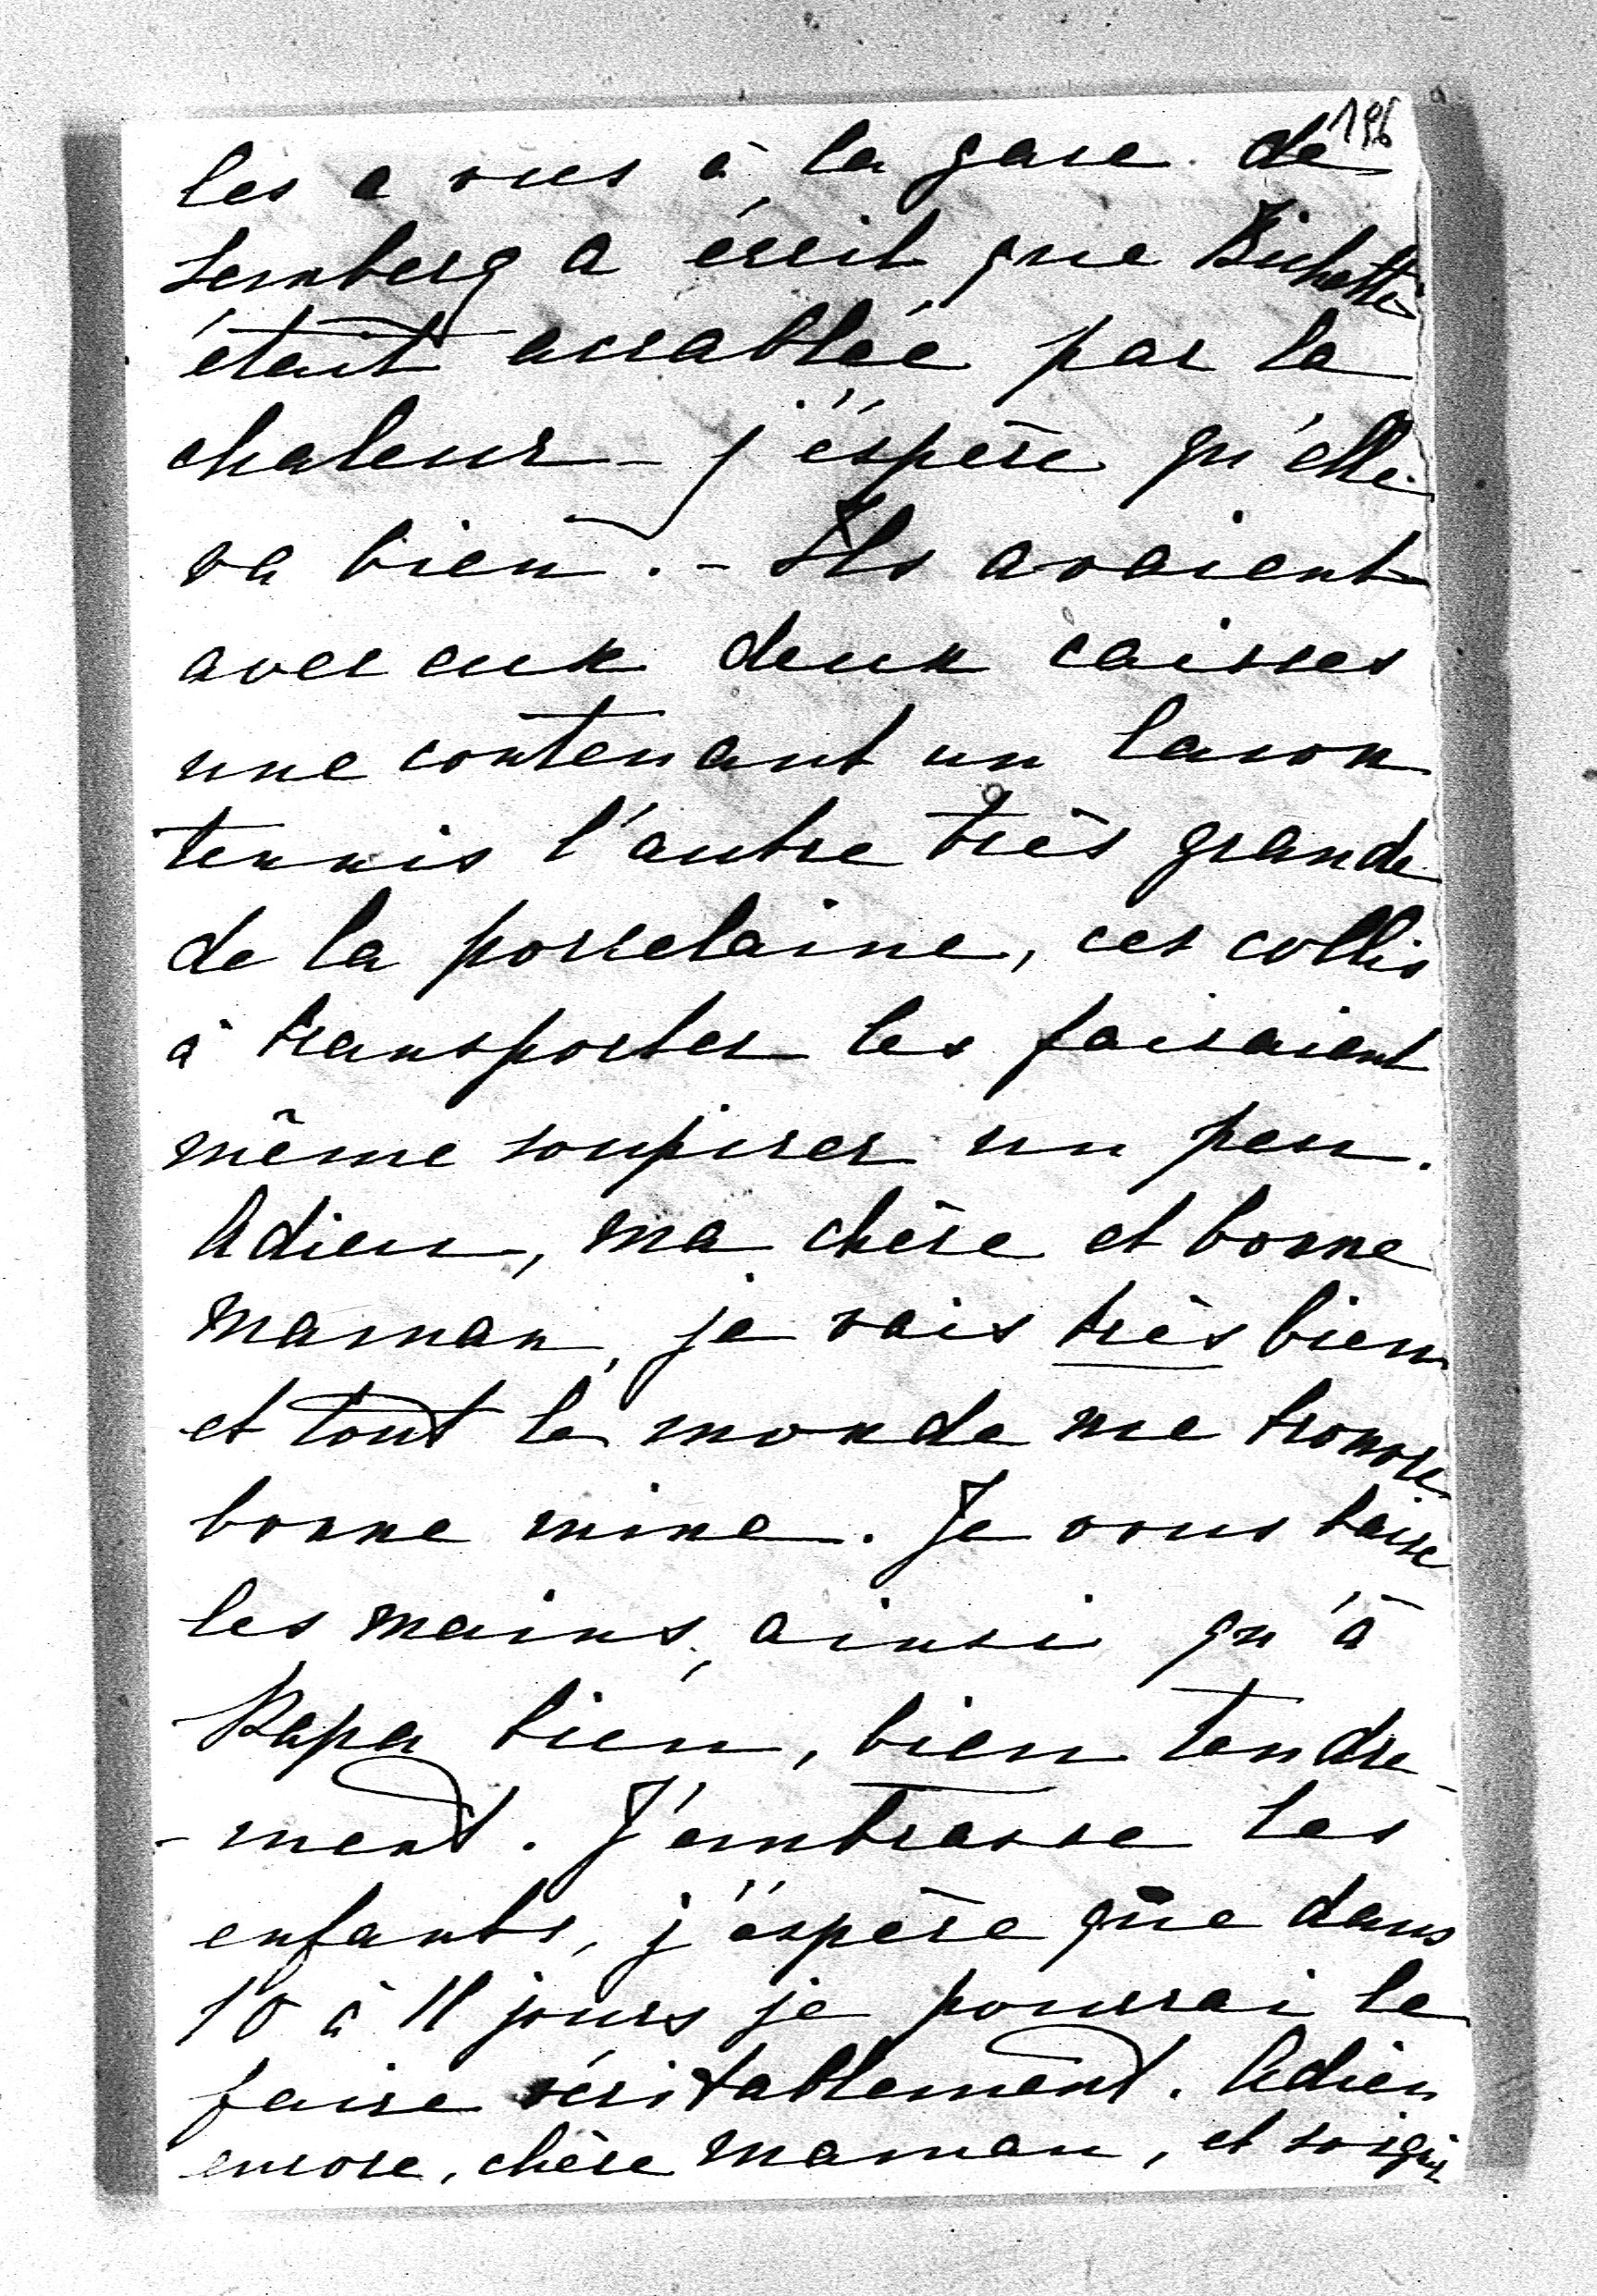 196
les a vus à la gare de
Lemberg a écrit que Bichette
était accablée par la
chaleur - j'éspère qu'elle
va bien. - Ils avaient
avec eux deux caisses
une contenant un lawn
tennis l'autre très grande
de la porcelaine, ces collis
à transporter les faisaient
même soupirer un peu.
Adieu, ma chère et bonne
Maman, je vais très bien
et tout le monde me trouve
bonne mine. Je vous baise
les mains, ainsi qu'à
Papa bien, bien tendre-
-ment. J'embrasse les
enfants, j'éspère que dans
10 à 11 jours je pourrai le
faire véritablement. Adieu
encore, chère Maman, et soignez